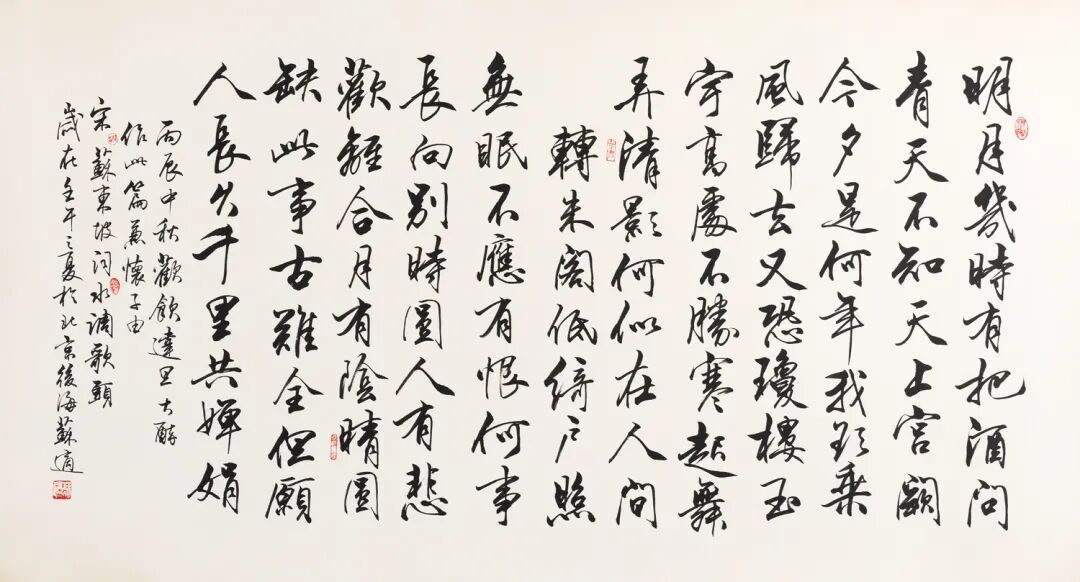 明月幾時有把酒問
青天不知天上宮闕
今夕是何年我欲乘
風歸去又恐瓊樓玉
宇高處不勝寒起舞
弄清影何似在人間
轉朱閣低綺戶照
無眠不應有恨何事
長向別時圓人有悲
歡離合月有陰晴圓
缺此事古難全但願
人長久千里共嬋娟
丙辰中秋歡飲達旦大醉
作此篇兼懷子由
宋蘇東坡詞水調歌頭
歲在壬午之夏於北京後海蘇適